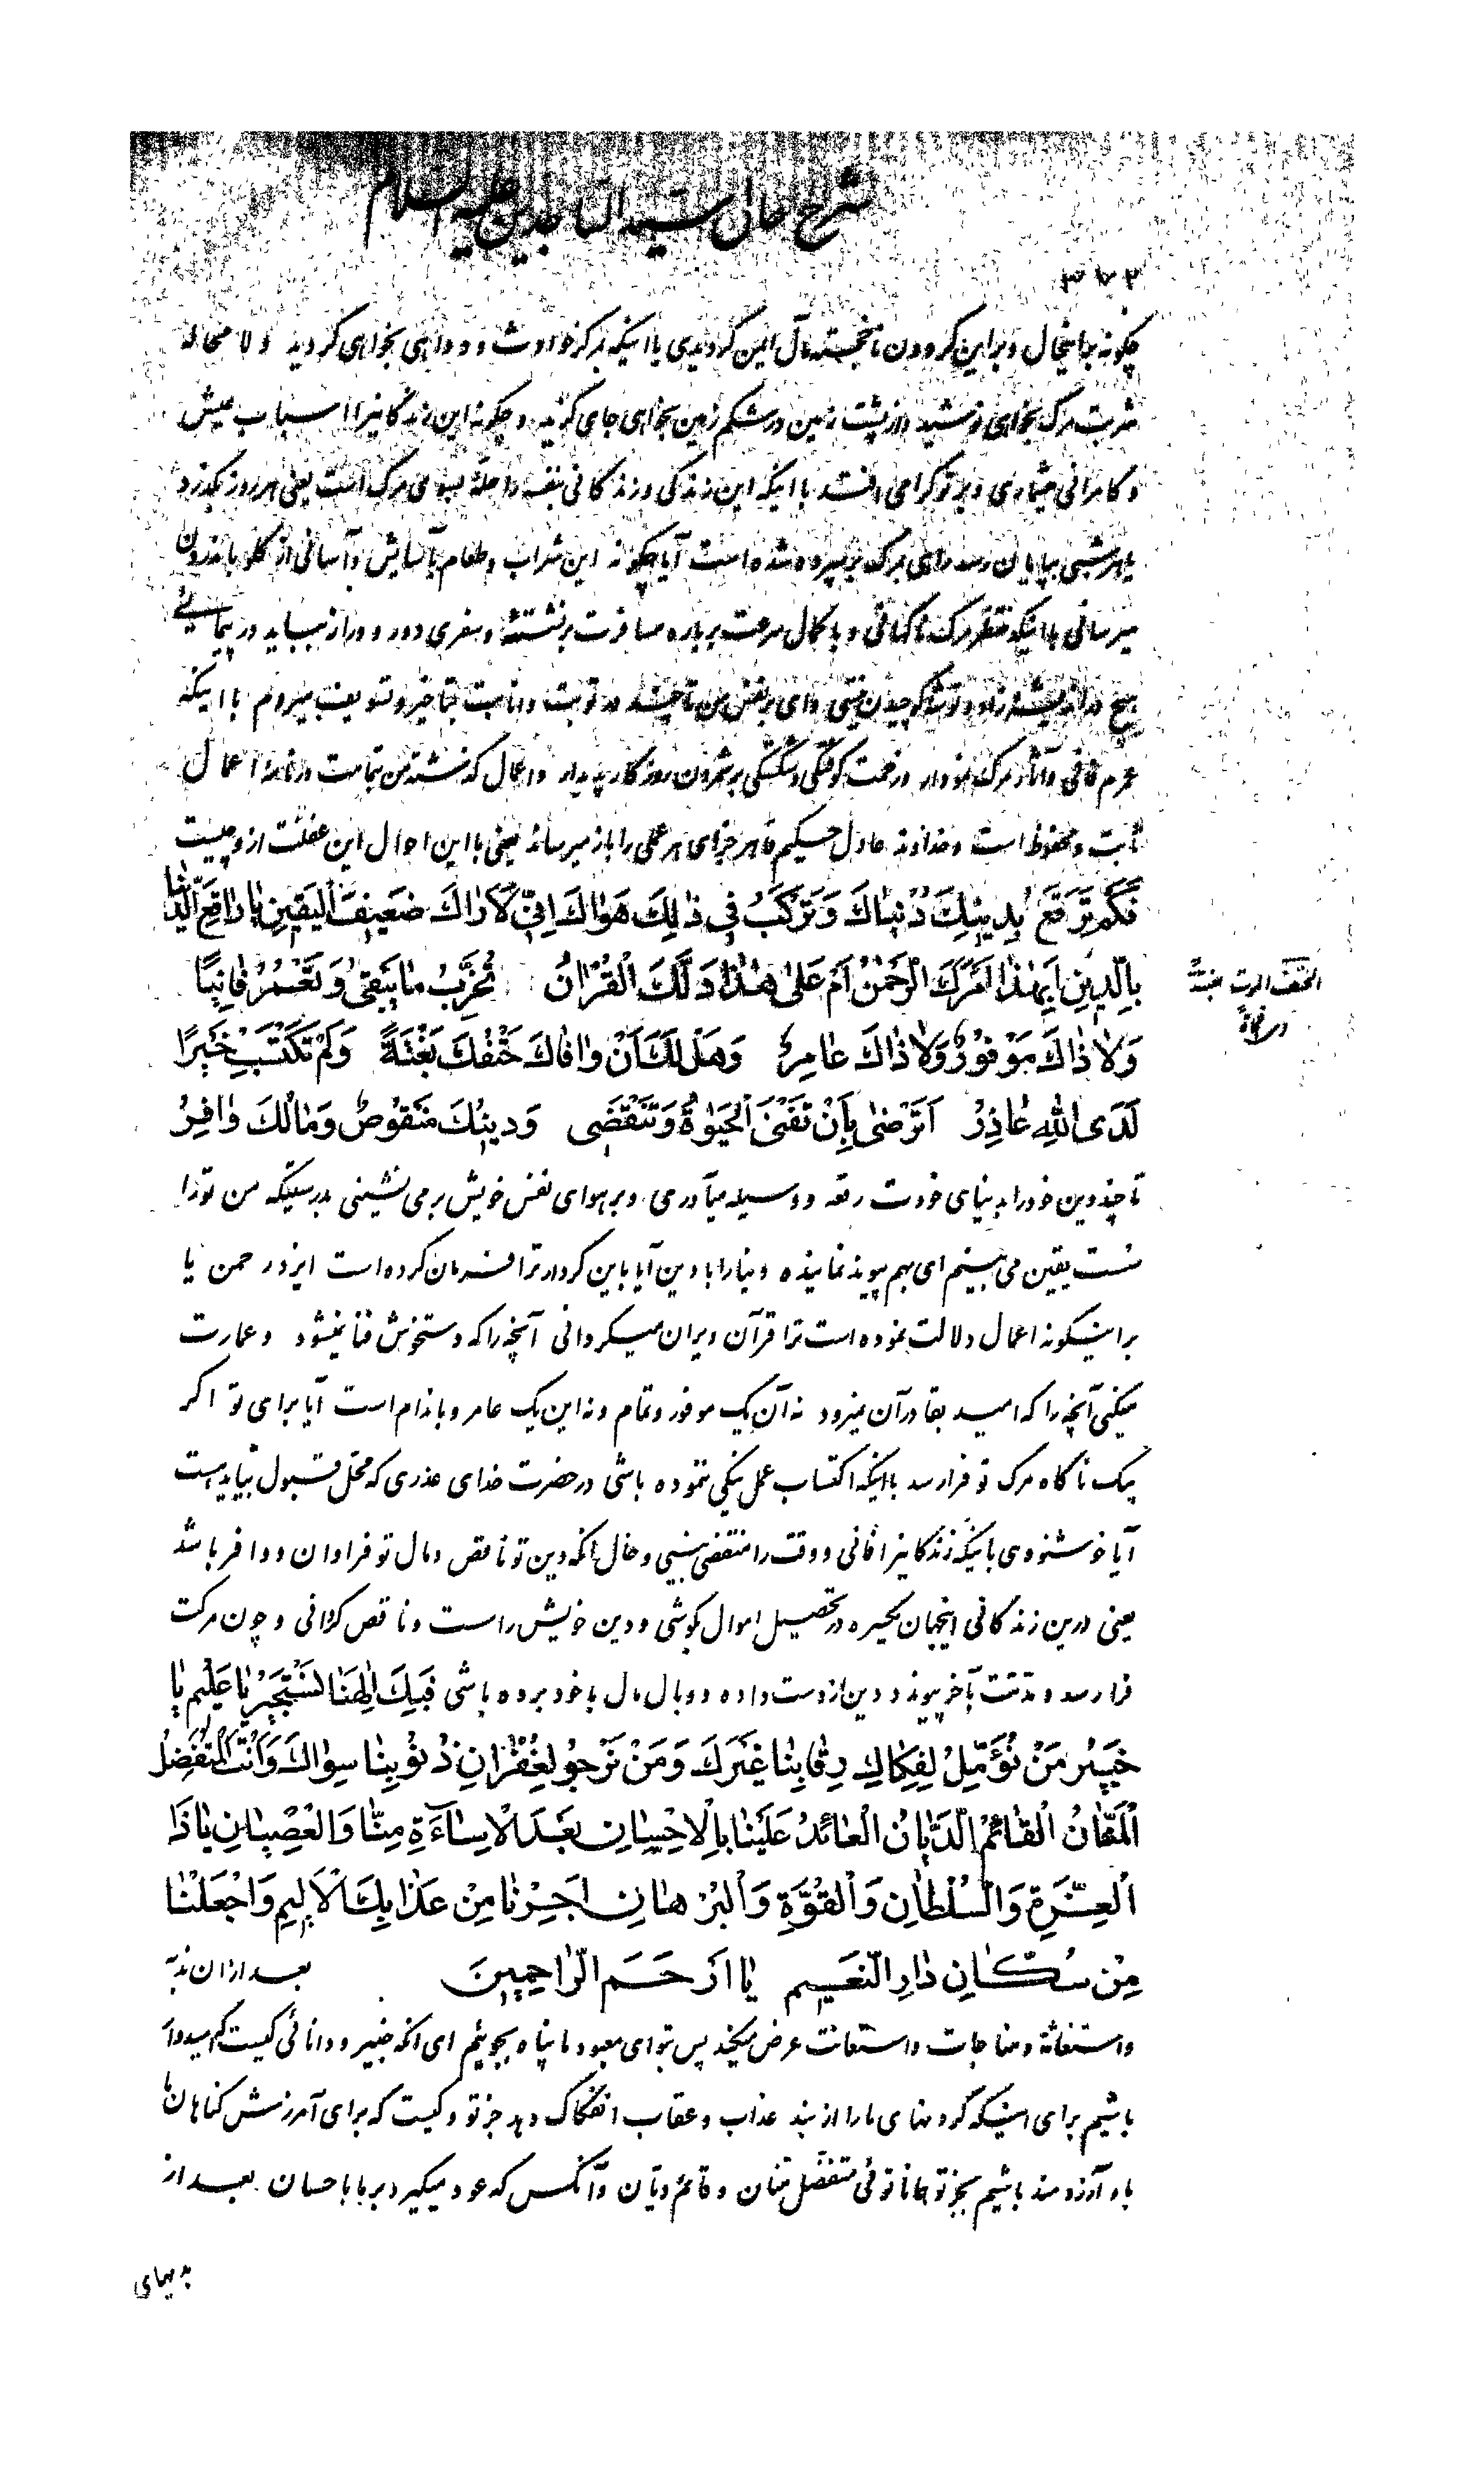 شرح حال سید الساجدین علیه السلام
۳۷۲
چکونه بر اینحال و براین کردون ناخجسته مآل ایمن کردیدی با اینکه مرکز حوادث و دواهی بخواهی کردید و لا محاله
شربت مرک بخواهی نوشید و از پشت زمین در شکم زمین بخواهی جای کزید و چکونه این زندکانیرا اسباب عیش
و کامرانی میشماری و بر تو کرامی افتد با اینکه این زندکی و زندکانی بنفسه راحلهٔ بسوی مرک است یعنی هر روز بکذرد
یا هر شبی بپایان رسد راهی بمرک بر سپرده شده است آیا چکونه این شراب و طعام بآسایش و آسانی از کلو باندرون
میرسانی با اینکه منتظر مرک ناکهانی و با کمال سرعت بر باره مسافرت برنشسته و سفری دور و دراز میباید در پیمائے
هیچ در اندیشهٔ زاد و توشه چیدن نیستی وای بر نفس من تا چند در توبت و انابت بتاخیر و تسویف میروم با اینکه
عمرم فانی و آثار مرک نمودار و زحمت کوفتکی و شکستکی بر شمردن روزکار پدیدار و اعمال کذشته من بتمامت در نامهٔ اعمال
ثابت و محفوظ است و خداوند عادل حکیم قاهر جزای هر عملی را باز میرساند یعنی با این احوال این غفلت از چیست
فَكَمْ تَرْقَعُ بِدِینِكَ دُنْیاكَ وَتَرْكَبُ فی ذٰلِكَ هَواكَ اِنّی لَاَراكَ ضَعیفَ الْیَقینِ یا راقِعَ الدُّنْیا
بِالدّینِ اَبِهٰذا اَمَرَكَ الرَّحْمٰنُ اَمْ عَلیٰ هٰذا دَلَّكَ الْقُرْاٰنُ تُخَرِّبُ ما یَبْقیٰ وَتَعْمُرُ فانِیًا
وَلا ذاكَ مَوْفُورٌ وَلا ذاكَ عامِرٌ وَهَلْ لَكَ اَنْ وافاكَ حَتْفُكَ بَغْتَةً وَلَمْ تَكْتَسِبْ خَیْرًا
لَدَی اللّٰهِ عاذِرٌ اَتَرْضیٰ بِاَنْ تَفْنَی الْحَیٰوةُ وَتَنْقَضی وَدینُكَ مَنْقُوصٌ وَمالُكَ وافِرُ
تا چند دین خود را بدنیای خودت رقعه و وسیله میآوری و بر هوای نفس خویش برمی نشینی بدرستیکه من تو را
سست یقین می بینم ای بهم پیوند نماینده دنیا را با دین آیا باین کردار ترا فرمان کرده است ایزد رحمن یا
بر اینکونه اعمال دلالت نموده است ترا قرآن ویران میکردانی آنچه را که دستخوش فنا نمیشود و عمارت
میکنی آنچه را که امید بقا در آن نمیرود نه آن یک موفور و تمام و نه این یک عامر و باندام است آیا برای تو اکر
پیک ناکاه مرک تو فرا رسد با اینکه اکتساب عمل نیکی ننموده باشی در حضرت خدای عذری که محل قبول بیاید هست
آیا خوشنودی باینکه زندکانیرا فانی و وقت را منقضی بینی و حال آنکه دین تو ناقص و مال تو فراوان و وافر باشد
یعنی درین زندکانی اینجهان یکسره در تحصیل اموال کوشی و دین خویش راست و ناقص کردانی و چون مرکت
فرا رسد و مدتت بآخر پیوندد دین از دست داده و وبال مال با خود برده باشی فَبِكَ اِلٰهَنا نَسْتَجیرُ یا عَلیمُ یا
خَبیرُ مَنْ نُؤَمِّلُ لِفِكاكِ رِقابِنا غَیْرَكَ وَمَنْ نَرْجُو لِغُفْرانِ ذُنُوبِنا سِواكَ وَاَنْتَ الْمُتَفَضِّلُ
الْمَنّانُ الْقائِمُ الدَّیّانُ الْعائِدُ عَلَیْنا بِالْاِحْسانِ بَعْدَ الْاِساءَةِ مِنّا وَالْعِصْیانِ یا ذَا
الْعِزَّةِ وَالسُّلْطانِ وَالْقُوَّةِ وَالْبُرْهانِ اَجِرْنا مِنْ عَذابِكَ الْاَلیمِ وَاجْعَلْنا
مِنْ سُكّانِ دارِ النَّعیمِ یا اَرْحَمَ الرّاحِمینَ بعد از ان ندبه
واستغاثه و مناجات و استعانت عرض میکند پس بتو ای معبود ما پناه بجوئیم ای آنکه خبیر و دانائی کیست که امیدوار
باشیم برای اینکه کردنهای ما را از بند عذاب و عقاب انفکاک دهد جز تو و کیست که برای آمرزش کناهان ما
باو آرزومند باشیم بجز تو همانا توئی متفضل منان و قائم دیان و آنکس که عود میکیرد بر ما با احسان بعد از
بدیهای